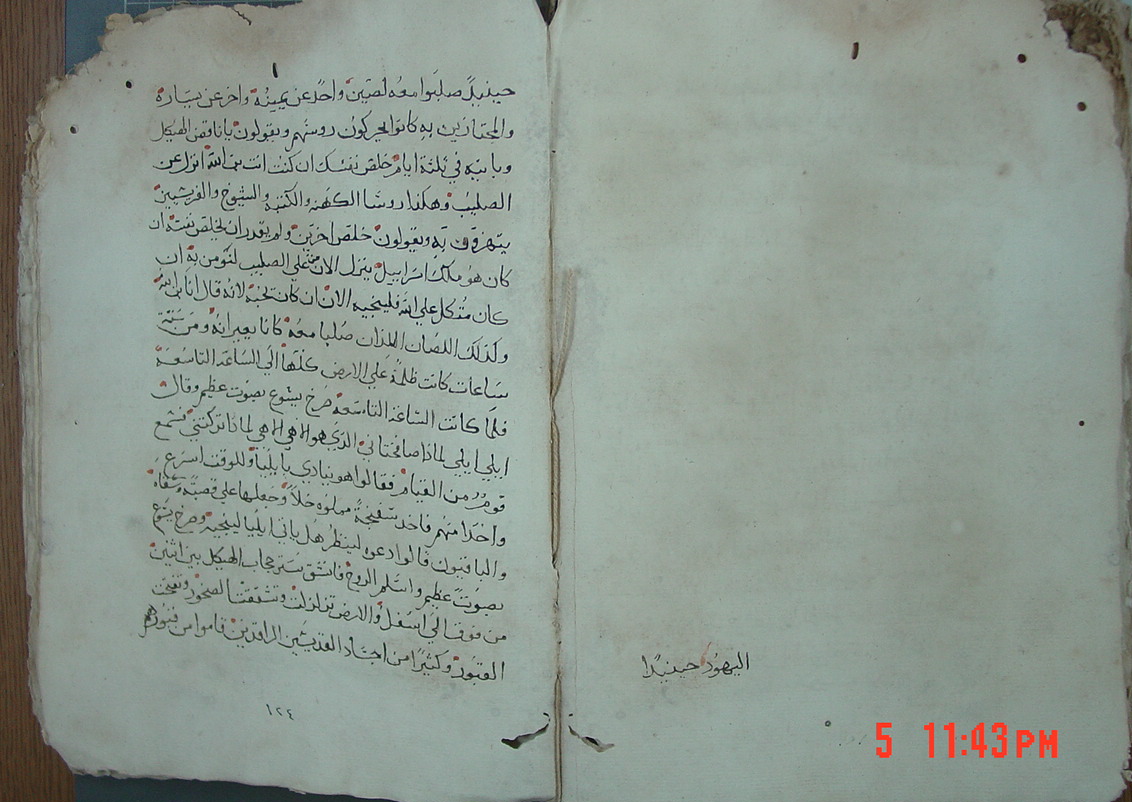 اليهود حينيدًا
حينيدً صلبوا معه لصين واحد عن يمينه واخر عن يساره
والمجتازين به كانوا يحركون روسهم ويقولون يا ناقض الهيكل
وبانيه في ثلثة ايام خلص نفسك ان كنت انت بن الله انزل عن
الصليب وهكذا روسا الكهنه والكتبه والشيوخ والفريسين
يتهزون به ويقولون خلص اخرين ولم يقدر ان يخلص نفسه ان
كان هو ملك اسراييل ينزل الان من علي الصليب لنومن به ان
كان متكل علي الله فلينجيه الان ان كان يحبه لانه قال انا بن الله
وكذلك اللصان اللذان صلبا معه كانا يعيرانه ومن ستة
ساعات كانت ظلمة علي الارض كلها الي الساعة التاسعة
فلما كانت الساعة التاسعه صرخ يسوع بصوت عظيم وقال
ايلي ايلي لماذا صافختاني الذي هو الاهي الاهي لماذا تركتني فسمع
قوم من القيام فقالوا هو ينادي يا ايليا وللوقت اسرع
واخدا منهم فاخد سفنجة مملوه خلا وجعلها علي قصبه وسقاه
والباقيون قالوا دعوه لينظر هل ياتي ايليا لينجيه وصرخ يسوع
بصوت عظيم واسلم الروح فانشق ستر حجاب الهيكل بين اثنين
من فوق الي اسفل والارض تزلزلت وتشققت الصخور وتفتحت
القبور وكثيرا من اجساد القديسين الراقدين قاموا من قبورهم
١٢٤
5 11:43PM